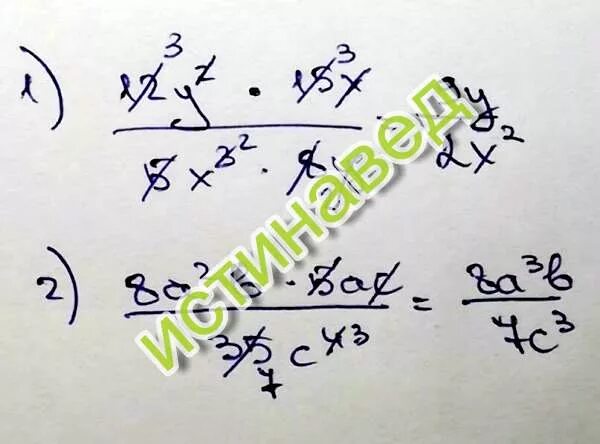 1) 12³y² · 15³x
5x³² · 8y
y
2x²
2) 8a² · 5ac = 8a³b
35 c⁴³ 7c³
7
истинавед